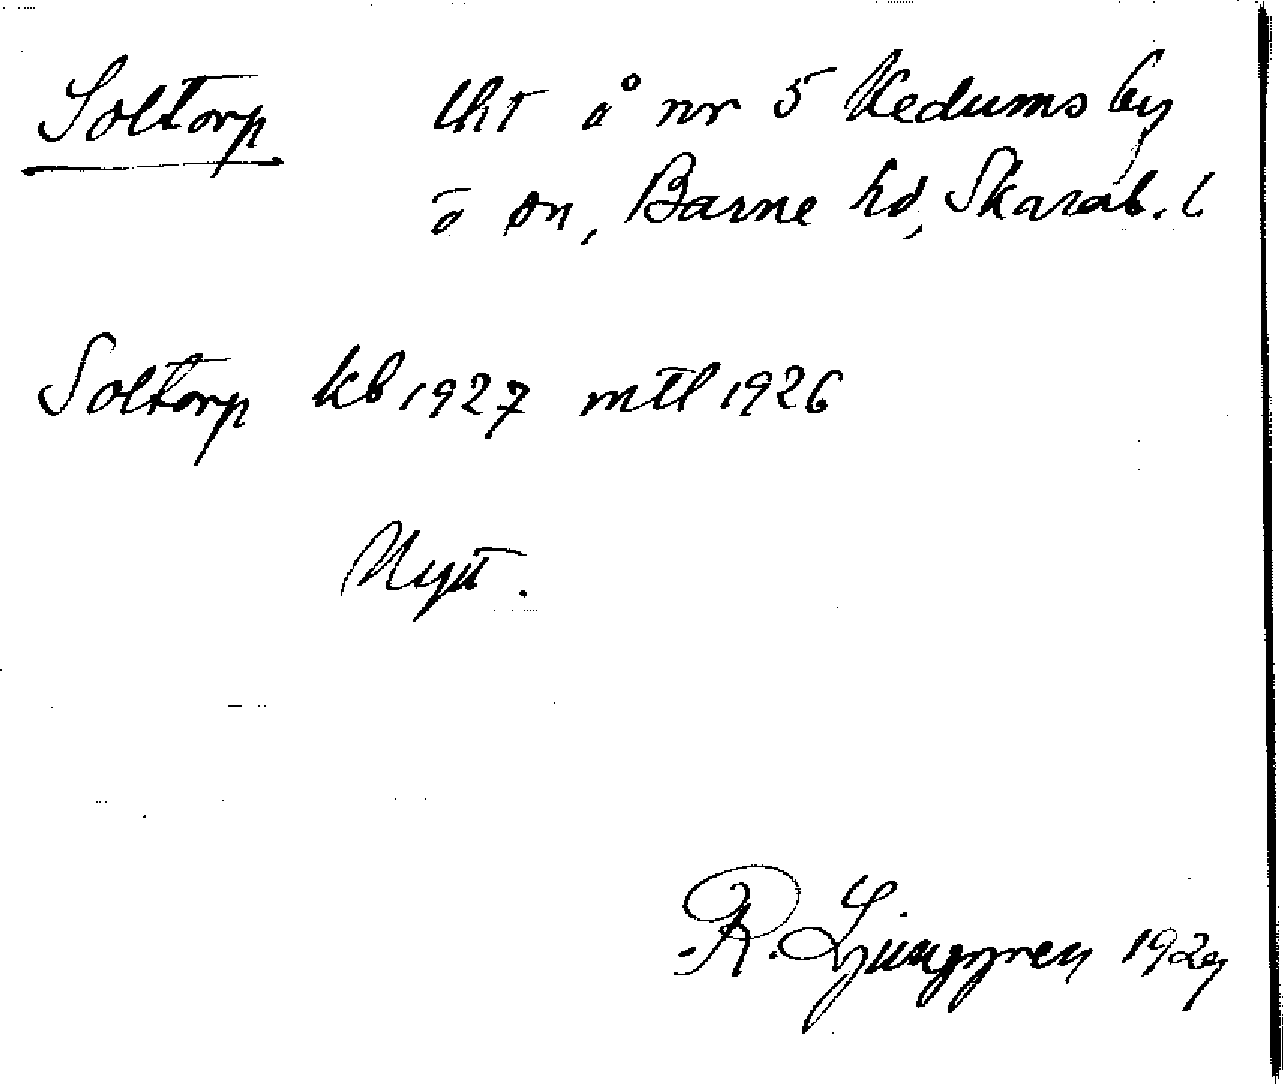 Soltorp lht å nr 5 Kedums by
ö sn, Barne hd, Skarab. l
Soltorp kb 1927 mtl 1926
Nytt.
R. Ljunggren 1927